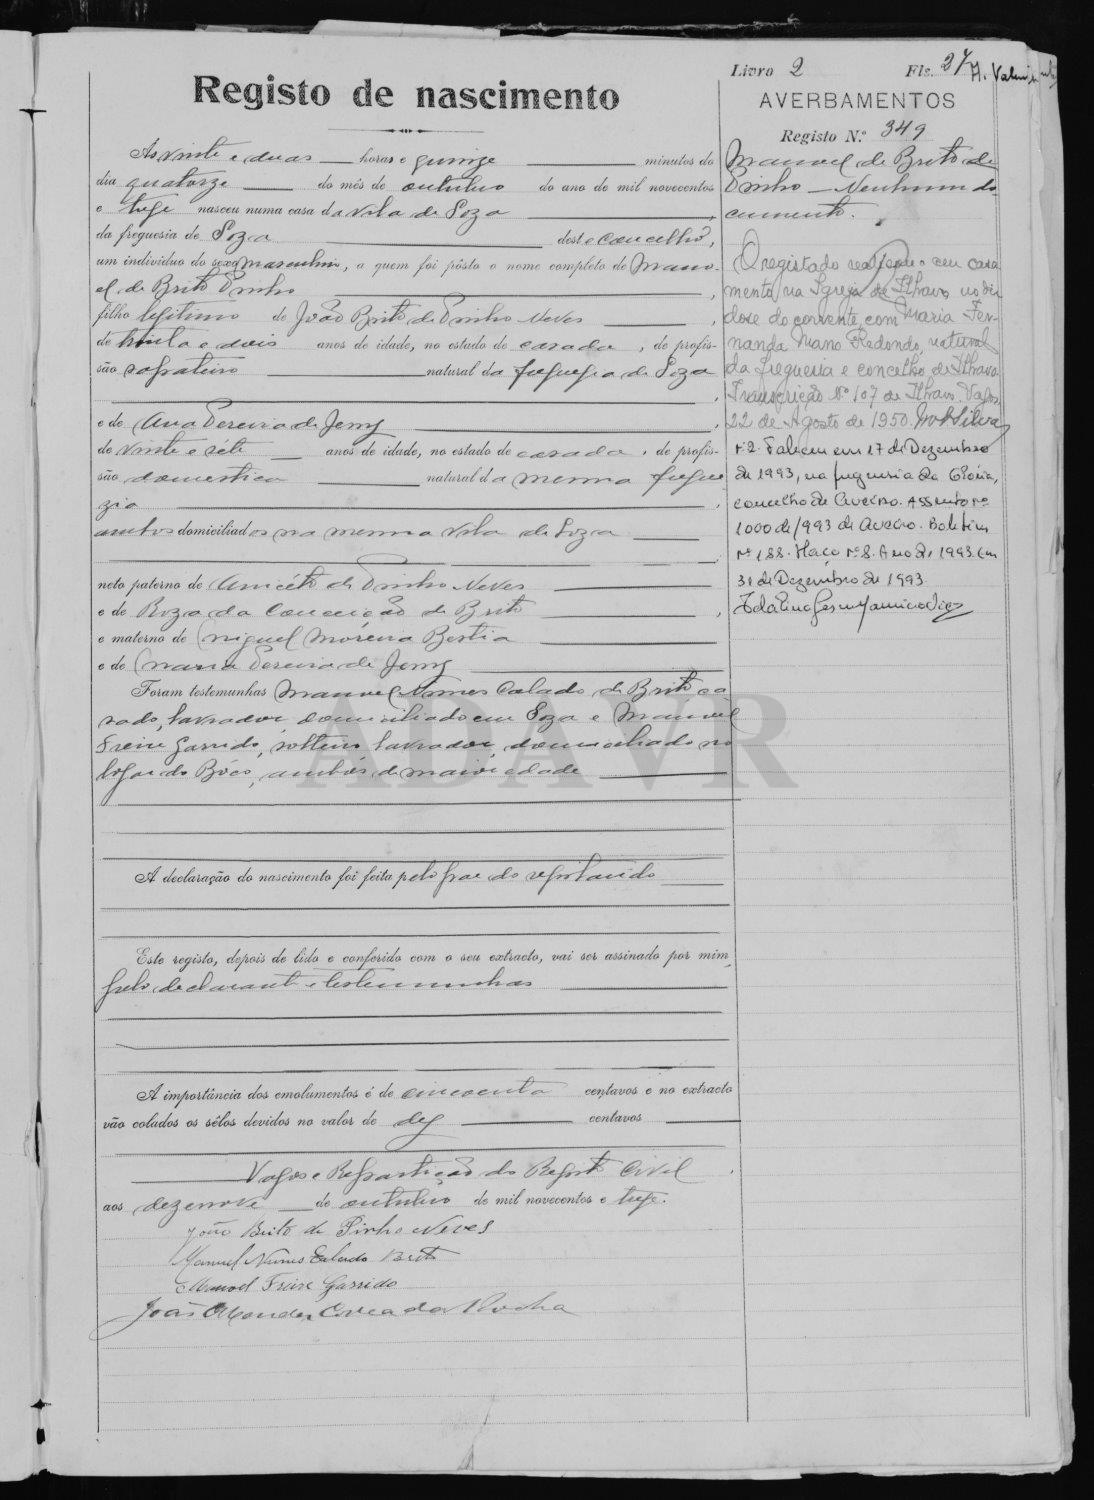 Livro 2 Fls. 27
Registo de nascimento
AVERBAMENTOS
Registo N.º 349
Manuel de Brito de
Pinho — Nenhum do-
cumento.
Ás vinte e duas horas e quinze minutos do
dia quatorze do mês de outubro do ano de mil novecentos
e treze nasceu numa casa da vila de Soza
da freguesia de Soza deste concelho,
um individuo do sexo masculino, a quem foi pôsto o nome completo de Mano-
el de Brito Pinho
filho legitimo de João Brito de Pinho Neves
de trinta e dois anos de idade, no estado de casado, de profis-
são sapateiro natural da freguezia de Soza
e de Ana Pereira de Jezus
de vinte e sete anos de idade, no estado de casada, de profis-
são domestica natural da mesma fregue
zia
ambos domiciliados na mesma vila de Soza
neto paterno de Aniceto de Pinho Neves
e de Roza da Conceição de Brito
e materno de Miguel Moreira Bestia
e de Maria Pereira de Jezus
Foram testemunhas Manuel Nunes Calado de Brito ca
sado, lavrador, domiciliado em Soza e Manuel
Freire Garrido, solteiro lavrador, domiciliado no
logar do Bôco, ambos de maior edade
A declaração do nascimento foi feita pelo pae do registando
Este registo, depois de lido e conferido com o seu extracto, vai ser assinado por mim,
pelo declarante e testemunhas
A importância dos emolumentos é de cincoenta centavos e no extracto
vão colados os sêlos devidos no valor de dez centavos
Vagos e Repartição do Registo Civil
aos dezenove de outubro de mil novecentos e treze.
João Brito de Pinho Neves
Manuel Nunes Calado Brito
Manoel Freire Garrido
João Mendes Correa da Rocha
O registado realizou o seu casa
mento na Igreja de Ilhavo no dia
doze do corrente, com Maria Fer-
nanda Mano Redondo, natural
da freguesia e concelho de Ilhavo
Transcrição Nº 107 de Ilhavo. Vagos,
22 de Agosto de 1950.
Nº 2. Faleceu em 17 de Dezembro
de 1993, na freguesia da Glória,
concelho de Aveiro. Assento nº
1000 de 1993 de Aveiro. Boletim
nº 188. Maço nº 8. Ano de 1993. Em
31 de Dezembro de 1993
ADAVR